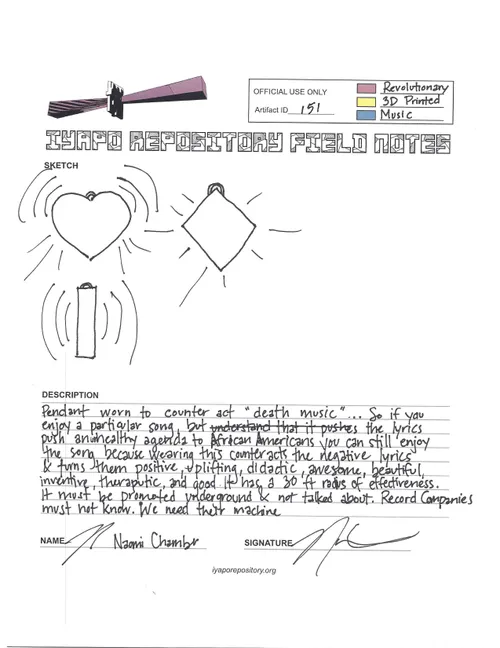 OFFICIAL USE ONLY
Artifact ID 151
Revolutionary
3D Printed
Music
IYAPO REPOSITORY FIELD NOTES
SKETCH
DESCRIPTION
Pendant worn to counter act "death music"... So if you
enjoy a particular song, but understand that it pushes the lyrics
push an unhealthy agenda to African Americans you can still enjoy
the song because wearing this counteracts the negative lyrics
& turns them positive, uplifting, didactic, awesome, beautiful,
inventive, theraputic, and good It has a 30 ft radius of effectiveness.
It must be promoted underground & not talked about. Record Companies
must not know. We need their machine
NAME Naomi Chambr
SIGNATURE
iyaporepository.org